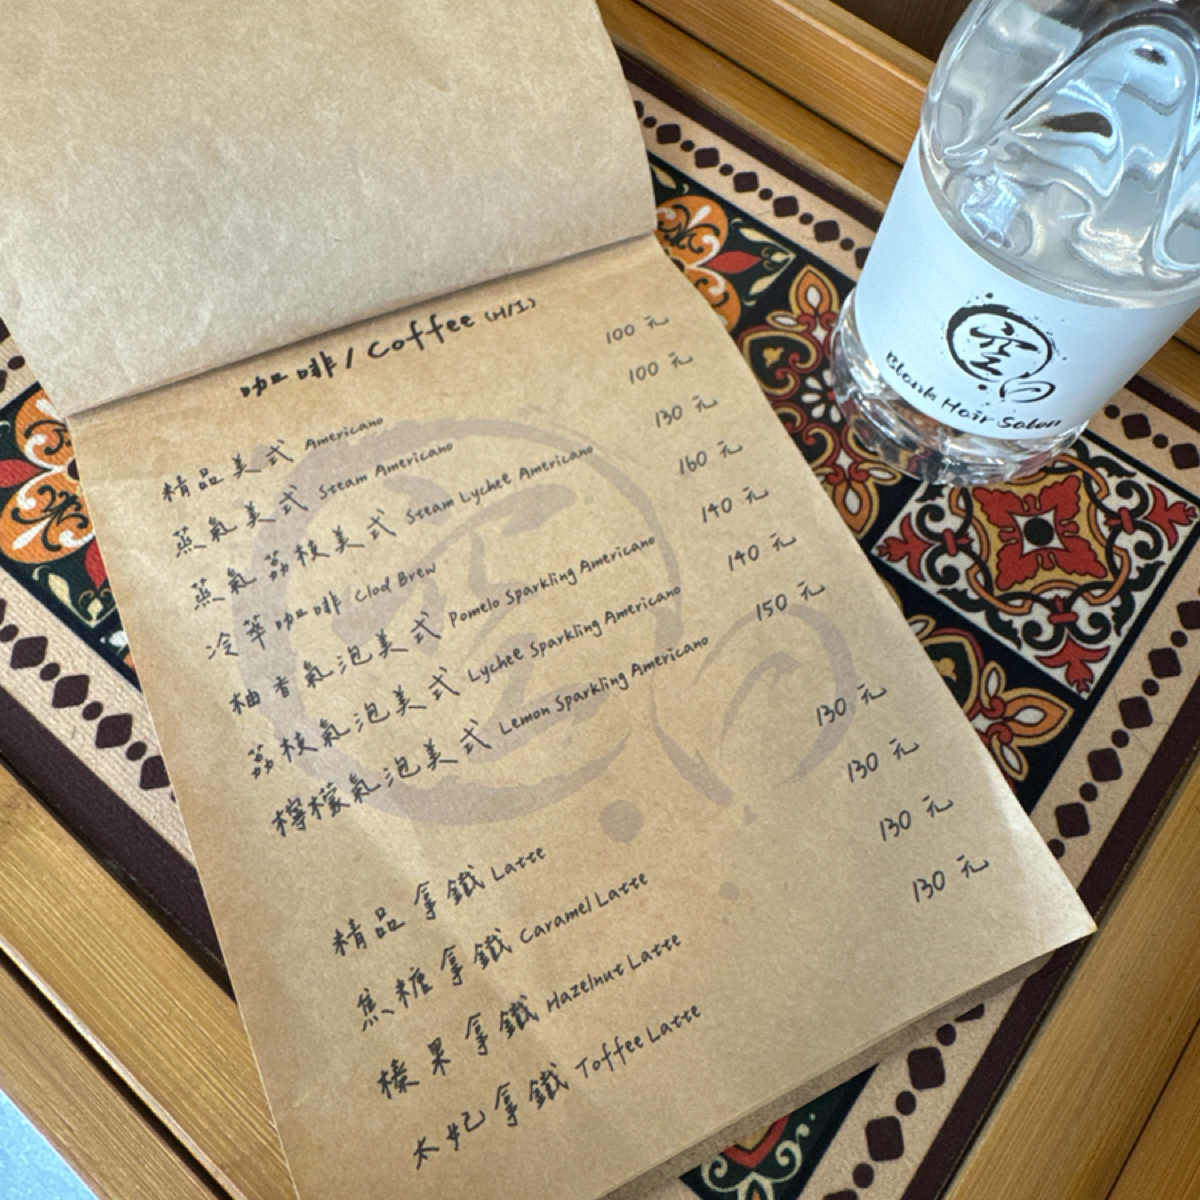 咖啡 / Coffee (H/I)
精品美式 Americano 100 元
蒸氣美式 Steam Americano 100 元
蒸氣荔枝美式 Steam Lychee Americano 130 元
冷萃咖啡 Clod Brew 160 元
柚香氣泡美式 Pomelo Sparkling Americano 140 元
荔枝氣泡美式 Lychee Sparkling Americano 140 元
檸檬氣泡美式 Lemon Sparkling Americano 150 元
精品拿鐵 Latte 130 元
焦糖拿鐵 Caramel Latte 130 元
榛果拿鐵 Hazelnut Latte 130 元
太妃拿鐵 Toffee Latte 130 元
空白
空白
Blank Hair Salon